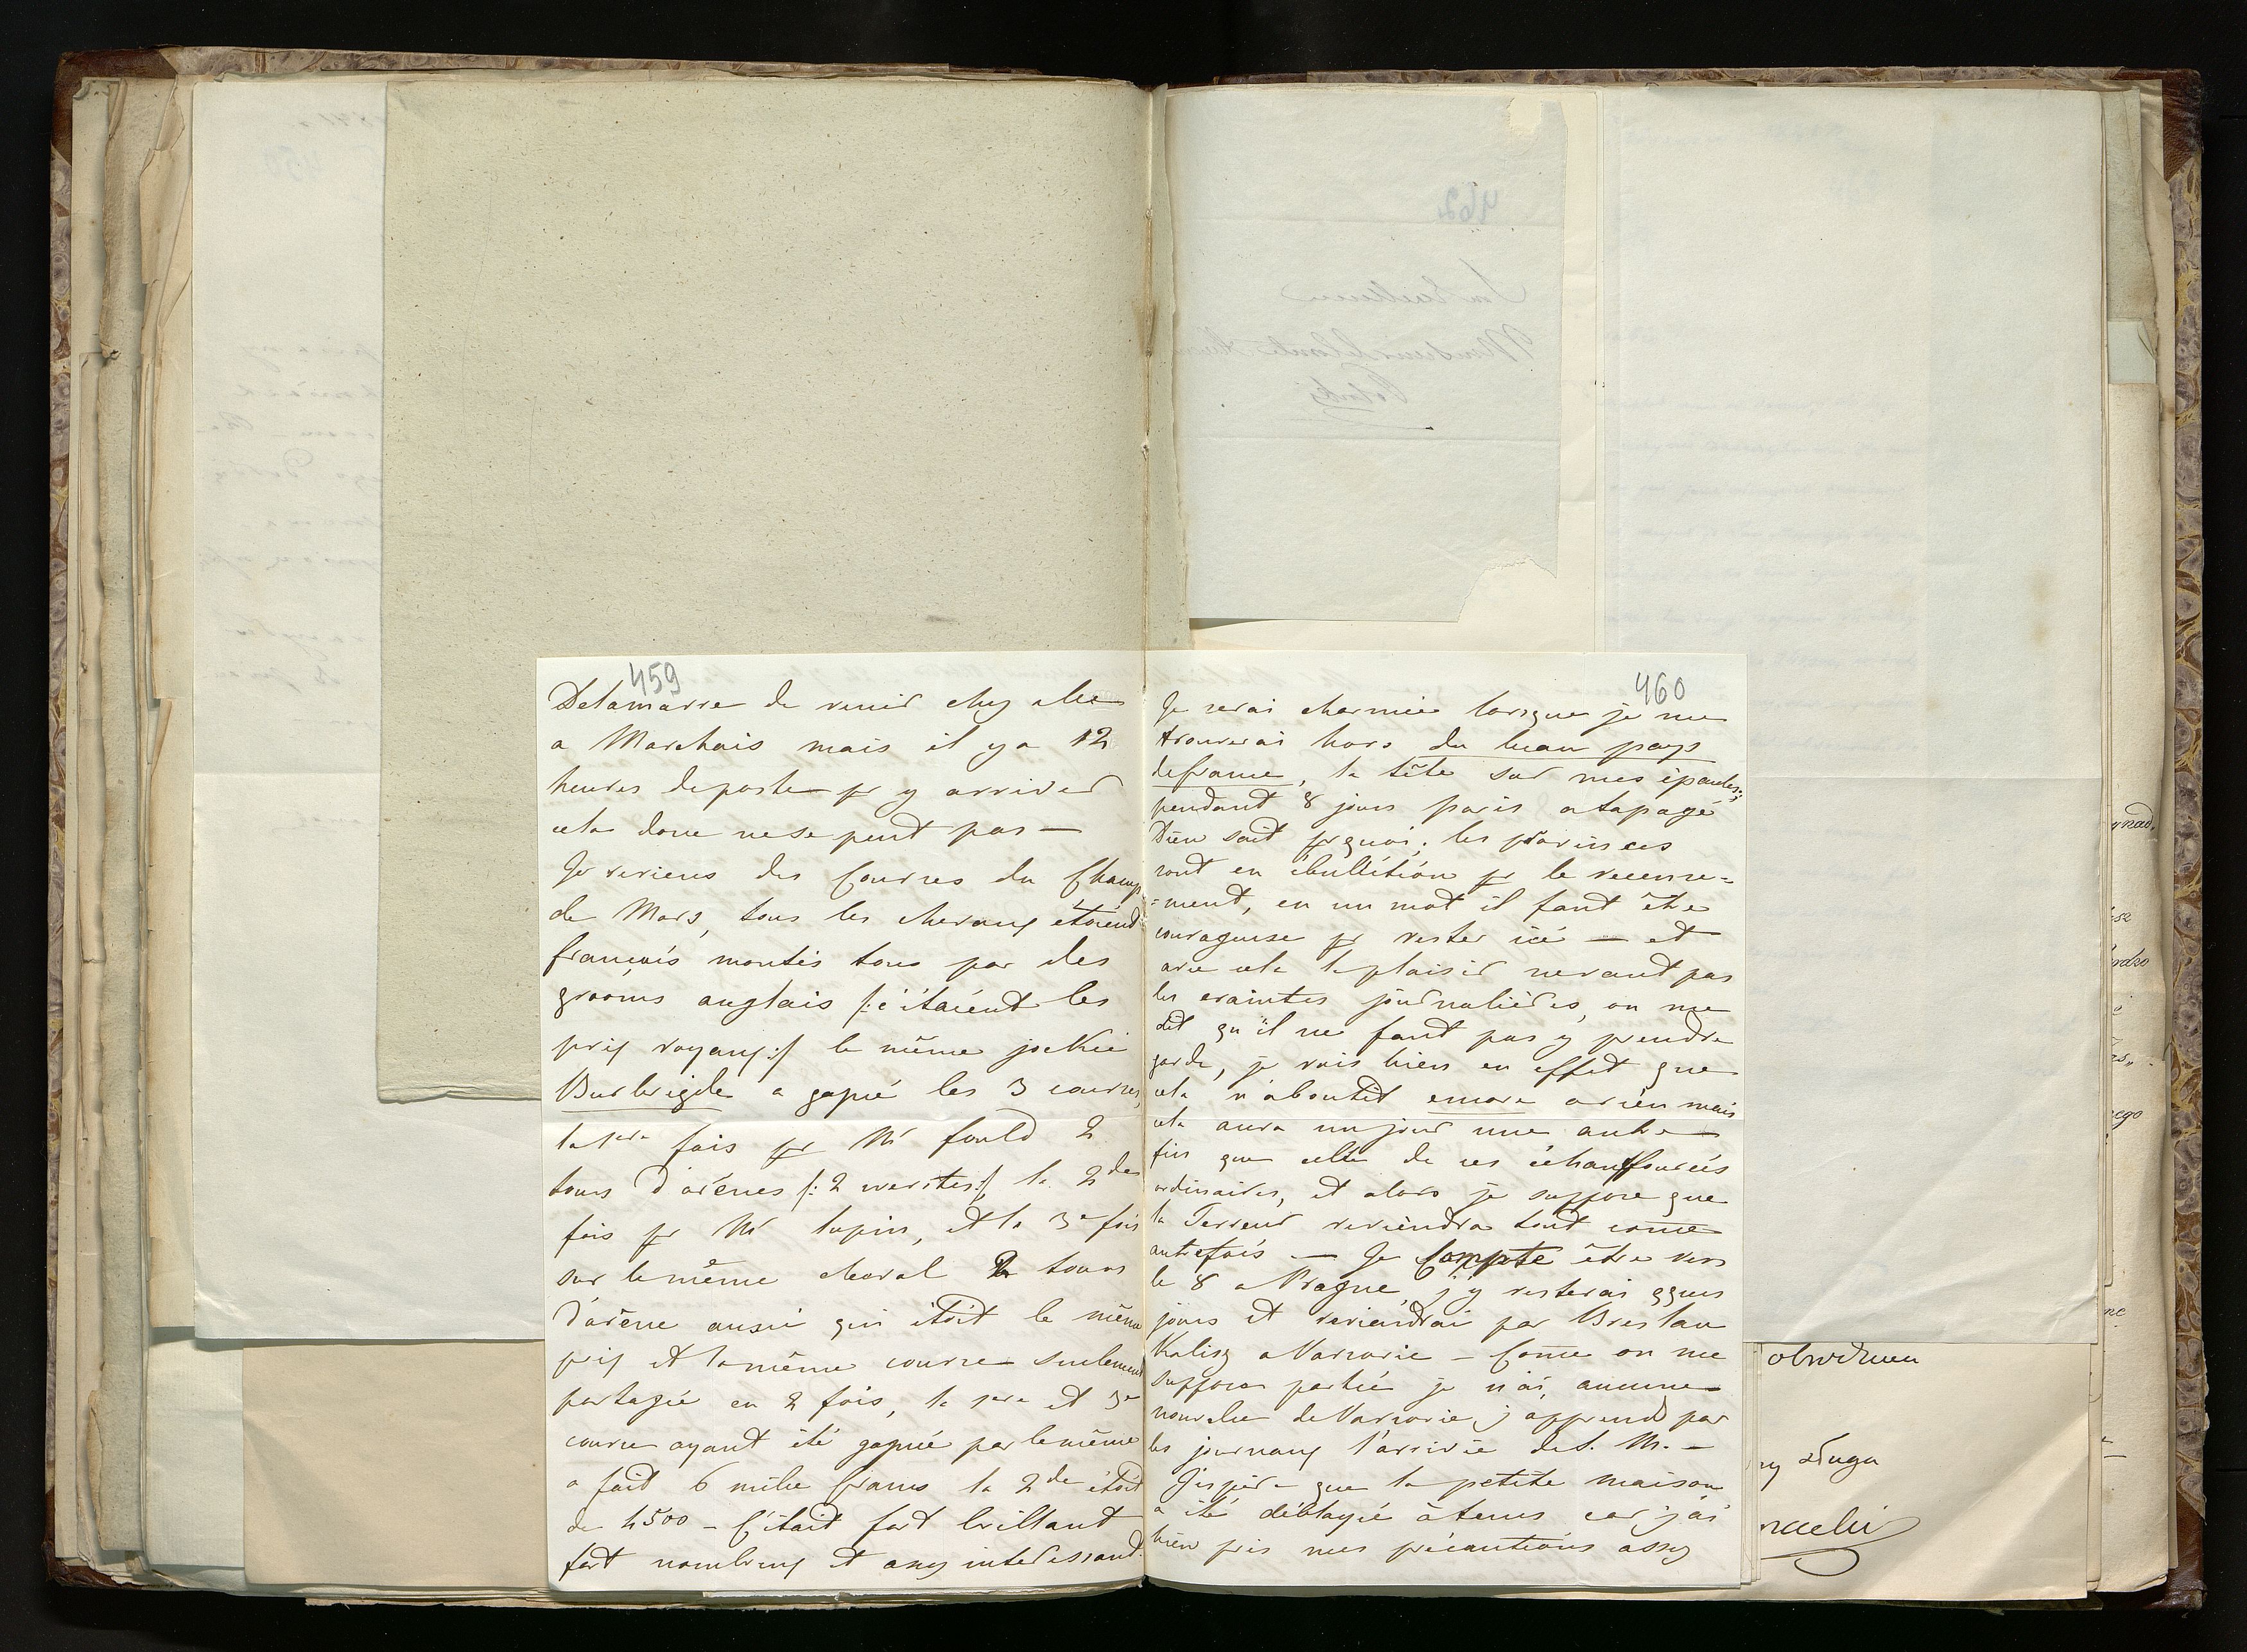 459
Delamarre de venir chez elle
a Marchais mais il y a 12
heures de poste pr y arriver
cela donc ne se peut pas —
Je reviens des Courses du Champ
de Mars, tous les chevaux étoient
françois montés tous par des
grooms anglais /: c'étaient les
prix royaux :/ le même jockie
a gagné les 3 courses,
la 1ere fois pr Mr fould 2
tours d'arènes /: 2 werstes :/, la 2de
fois pr Mr lupin, et la 3e fois
sur le même cheval 2 tours
d'arène aussi qui étoit le même
prix et la même course seulement
partagée en 2 fois, la 1ere et 3e
course ayant été gagnée par le même
a fait 6 mille francs la 2de étoit
de 4500 — C'était fort brillant
fort nombreux et assez interessant.
460
Je serai charmée lorsque je me
trouverai hors du beau pays
de france, la tête sur mes épaules;
pendant 8 jours paris a tapagé
Dieu sait pr quoi; les provinces
sont en ébullition pr le recense=
=ment, en un mot il faut être
courageuse pr rester ici — et
avec cela le plaisir ne vaut pas
les craintes journalières, on me
dit qu'il ne faut pas y prendre
garde, je vois bien en effet que
cela n'aboutit encore a rien mais
cela aura un jour une autre
fin que celle de ces échauffourées
ordinaires, et alors je suppose que
la Terreur reviendra tout come
autrefois — Je Compte être vers
le 8 a Prague, j'y resterai qques
jours et reviendrai par Breslau
Kalisz a Varsovie — Come on me
suppose partie je n'ai, aucune
nouvelle de Varsovie, j'apprends par
les journaux l'arrivée de S. M. —
J'espère que la petite maison
a été déblayée à tems car j'ai
bien pris mes précautions assez
obowdzieu
sługa